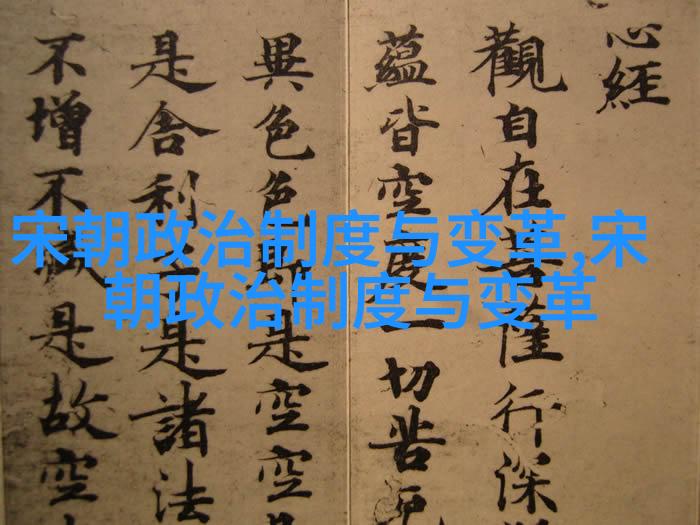 宋朝政治制度与变革,宋
朝政治制度与变革
心經
觀自在菩薩行深
蘊皆空度一切苦厄
異色色即是空空
是舍利子是諸法
不增不減是故空